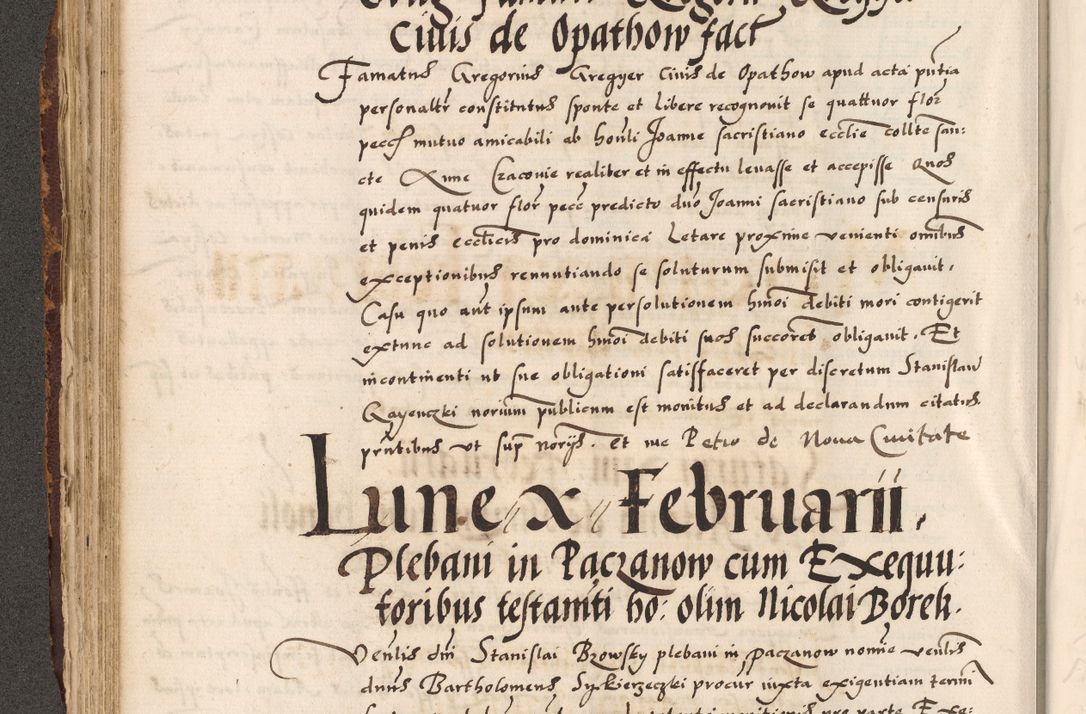 Civis de Opathow fact
Famatus Gregorius Gregyer Civis de Opathow apud acta pntia
personaltr constitutus sponte et libere recognovit se quattuor flor
pecc mutuo amicabili ab honli Joanne sacristiano ecclie collte san:
cte Anne Cracovie realiter et in effectu levasse et accepisse Quos
quidem quatuor flor pecc predicto dno Joanni sacristiano sub censuris
et penis ecclticis pro dominica Letare proxime venienti omnibus
exceptionibus rennutiando se soluturum submisit et obligavit.
Casu quo aut ipsum ante persolutionem hmoi debiti mori contigerit
extunc ad solutionem hmoi debiti suos succores obligavit. Et
incontinenti ut sue obligationi satisfaceret per discretum Stanislaw
norium publicum est monitus et ad declarandum citatus.
pntibus ut sup norijs. Et me Petro de Nova Civitate
Lune x Februarii.
Plebani in Paczanow cum Exequu:
toribus testamti ho: olim Nicolai Borek.
Venlis dni Stanislai Brzowsky plebani in Paczanow nomie venlis
dnus Bartholomeus procur iuxta exigentiam termi